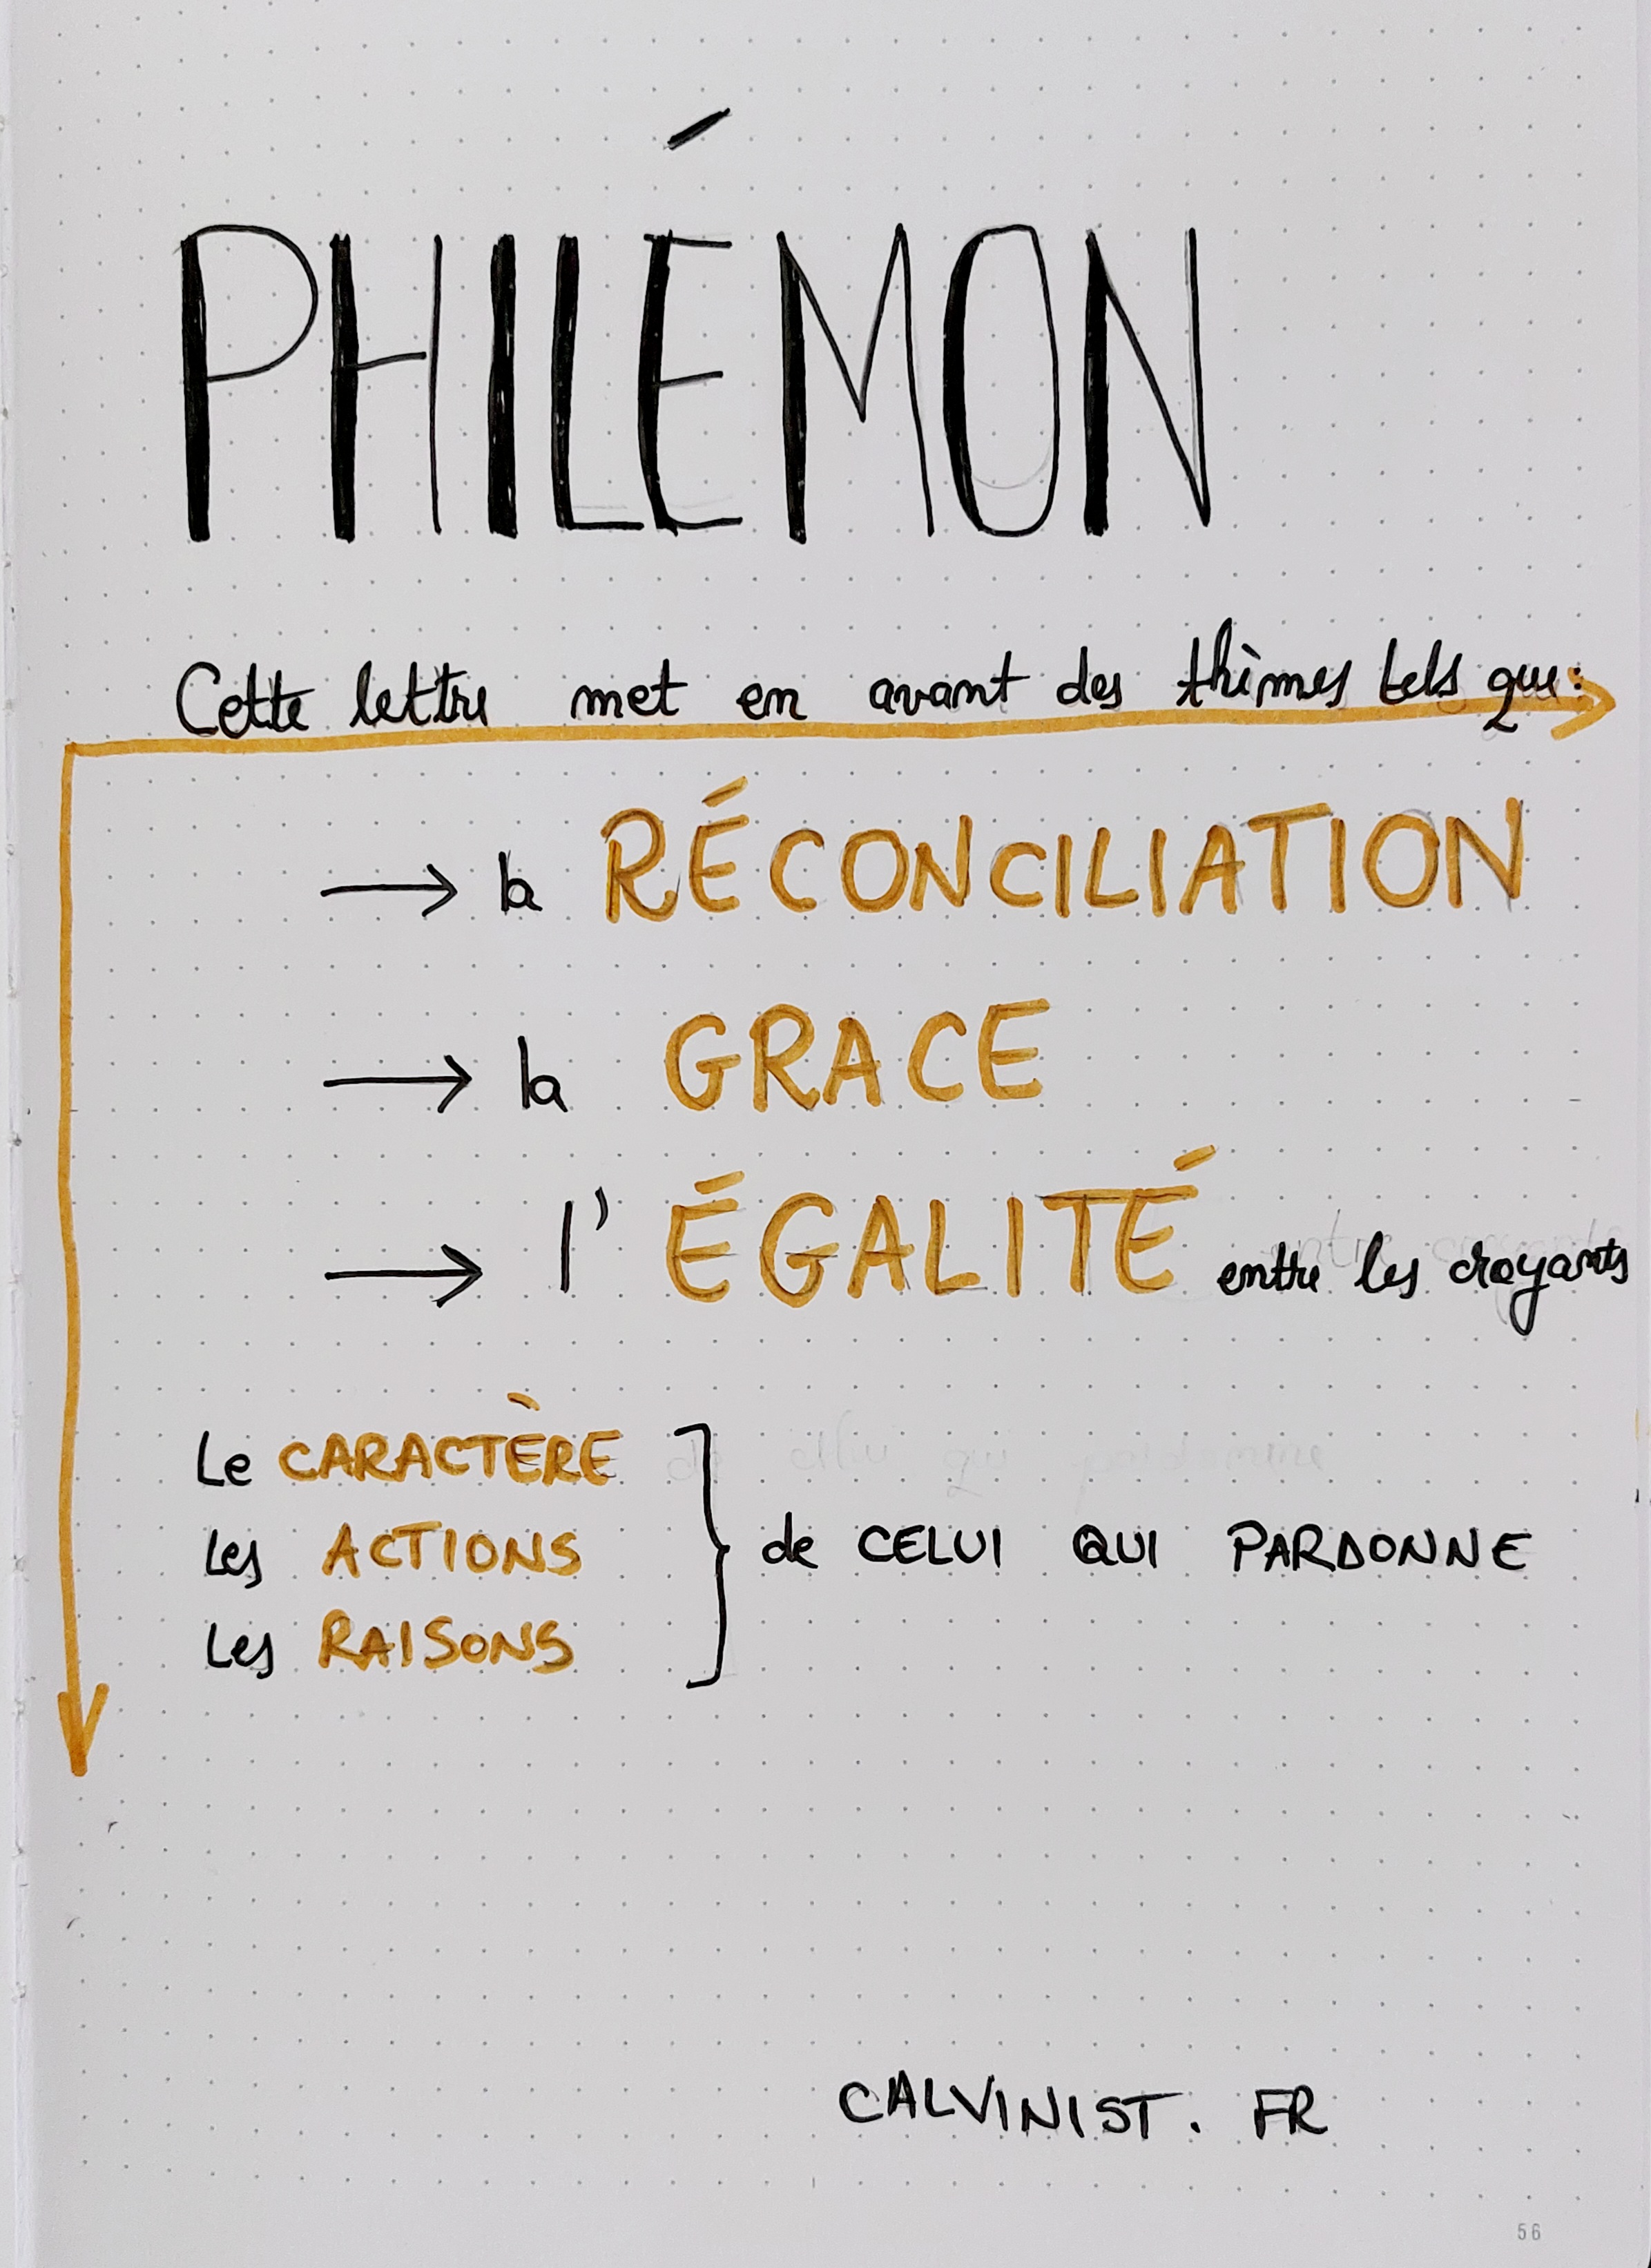 PHILÉMON
Cette lettre met en avant des thèmes tels que:
→ la RÉCONCILIATION
→ la GRACE
→ l'ÉGALITÉ entre les croyants
Le CARACTÈRE
Les ACTIONS } de CELUI QUI PARDONNE
Les RAISONS
CALVINIST. FR
56